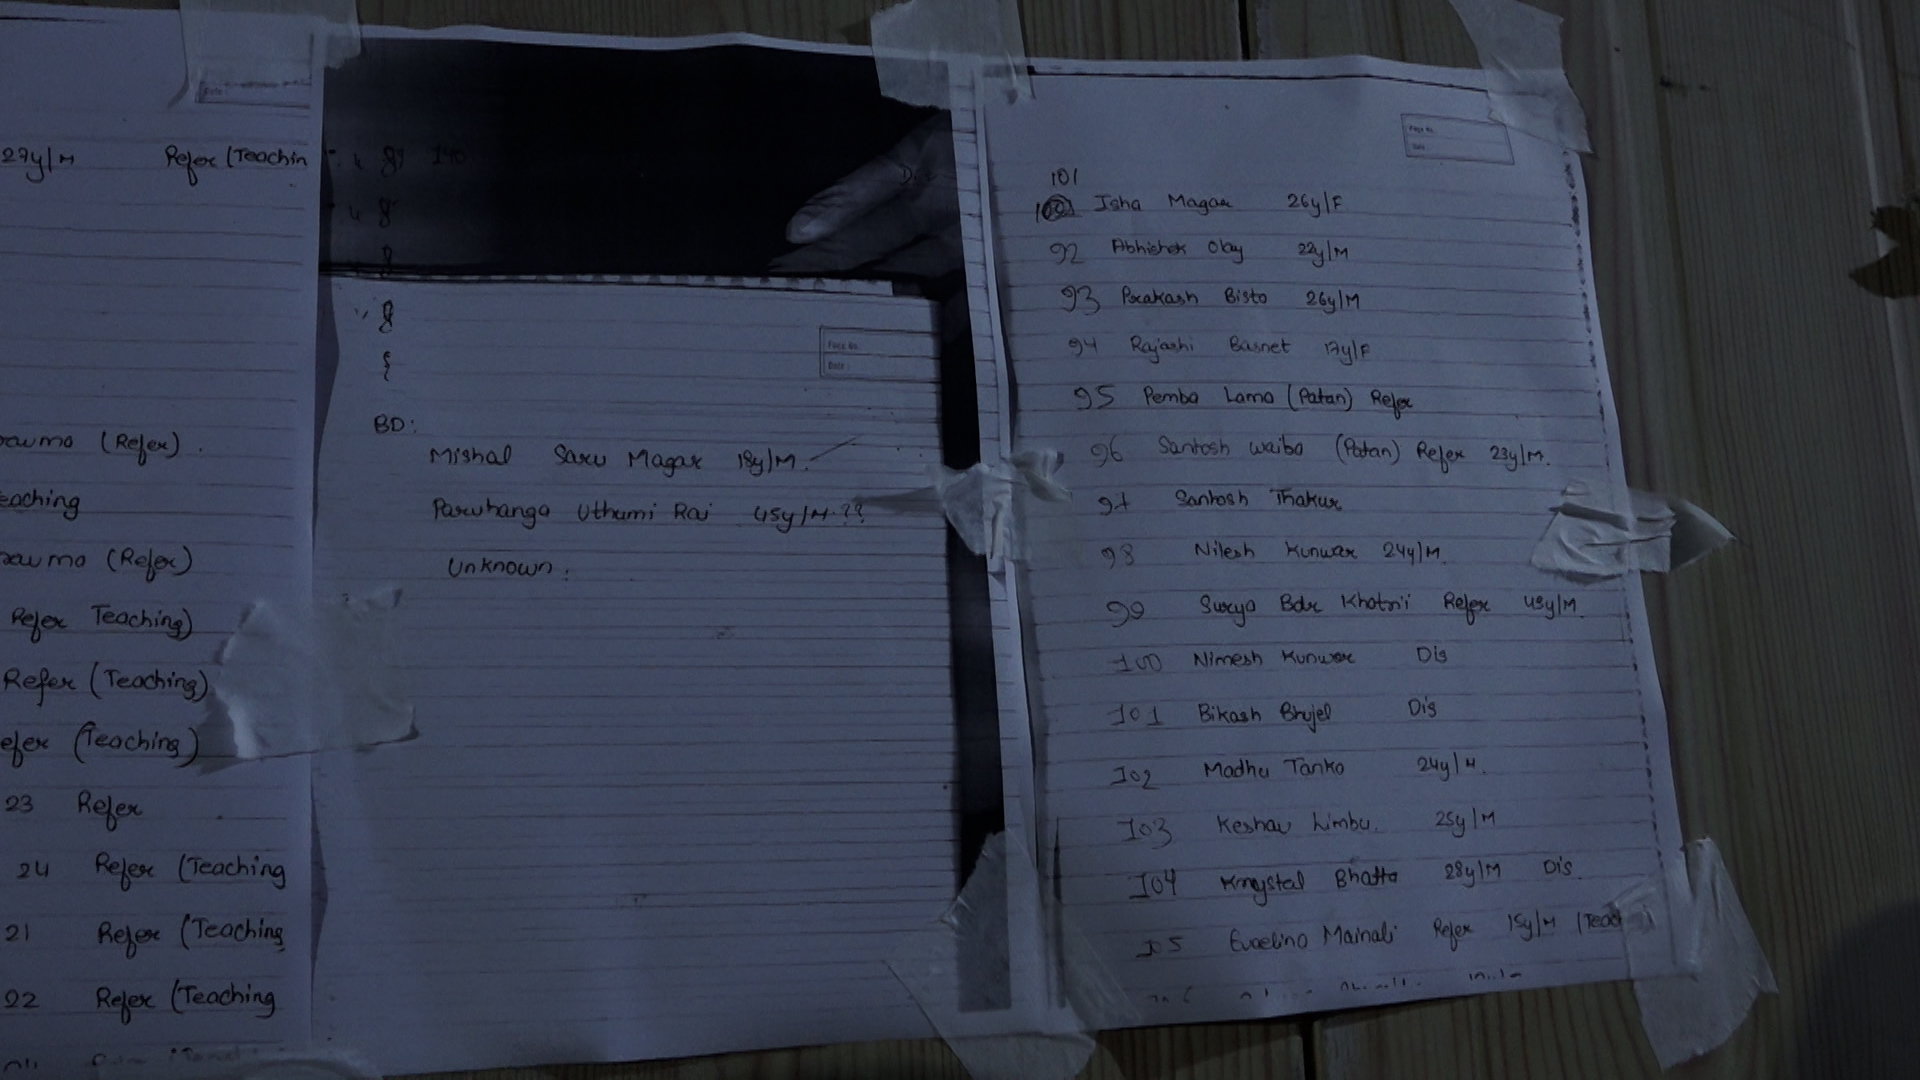 27y/M Refer (Teachin
(Refer).
eaching
(Refer)
Refer Teaching)
Refer (Teaching)
efer (Teaching)
23 Refer
24 Refer (Teaching
21 Refer (Teaching
22 Refer (Teaching
Page No.
Date:
BD:
Mishal Saru Magar 18y/M.
Paruhanga Uthumi Rai 45y/M ??
Unknown.
Page No.
Date
101
Isha Magar 26y/F
92 Abhishek 22y/M
93 Prakash Bista 26y/M
94 Rajashi Basnet 17y/F
95 Pemba Lama (Patan) Refer
96 Santosh Waiba (Patan) Refer 23y/M.
97 Santosh Thakur
98 Nilesh Kunwar 24y/M.
99 Surya Bdr Khatri Refer 45y/M.
100 Nimesh Kunwar Dis
101 Bikash Bhujel Dis
102 Madhu Tanko 24y/M.
103 Keshav Limbu. 25y/M
104 Bhatta 28y/M Dis.
105 Mainali Refer 15y/M (Teach